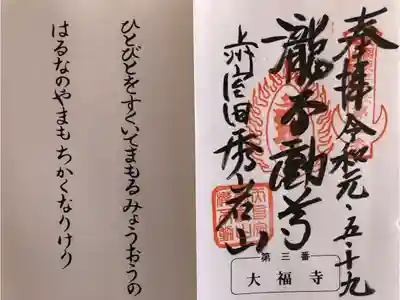 奉拝 令和元・五・十九
瀧不動尊
上州室田 秀岩山
第三番
大福寺
ひとびとをすくいてまもるみょうおうの
はるなのやまも ちかくなりけり